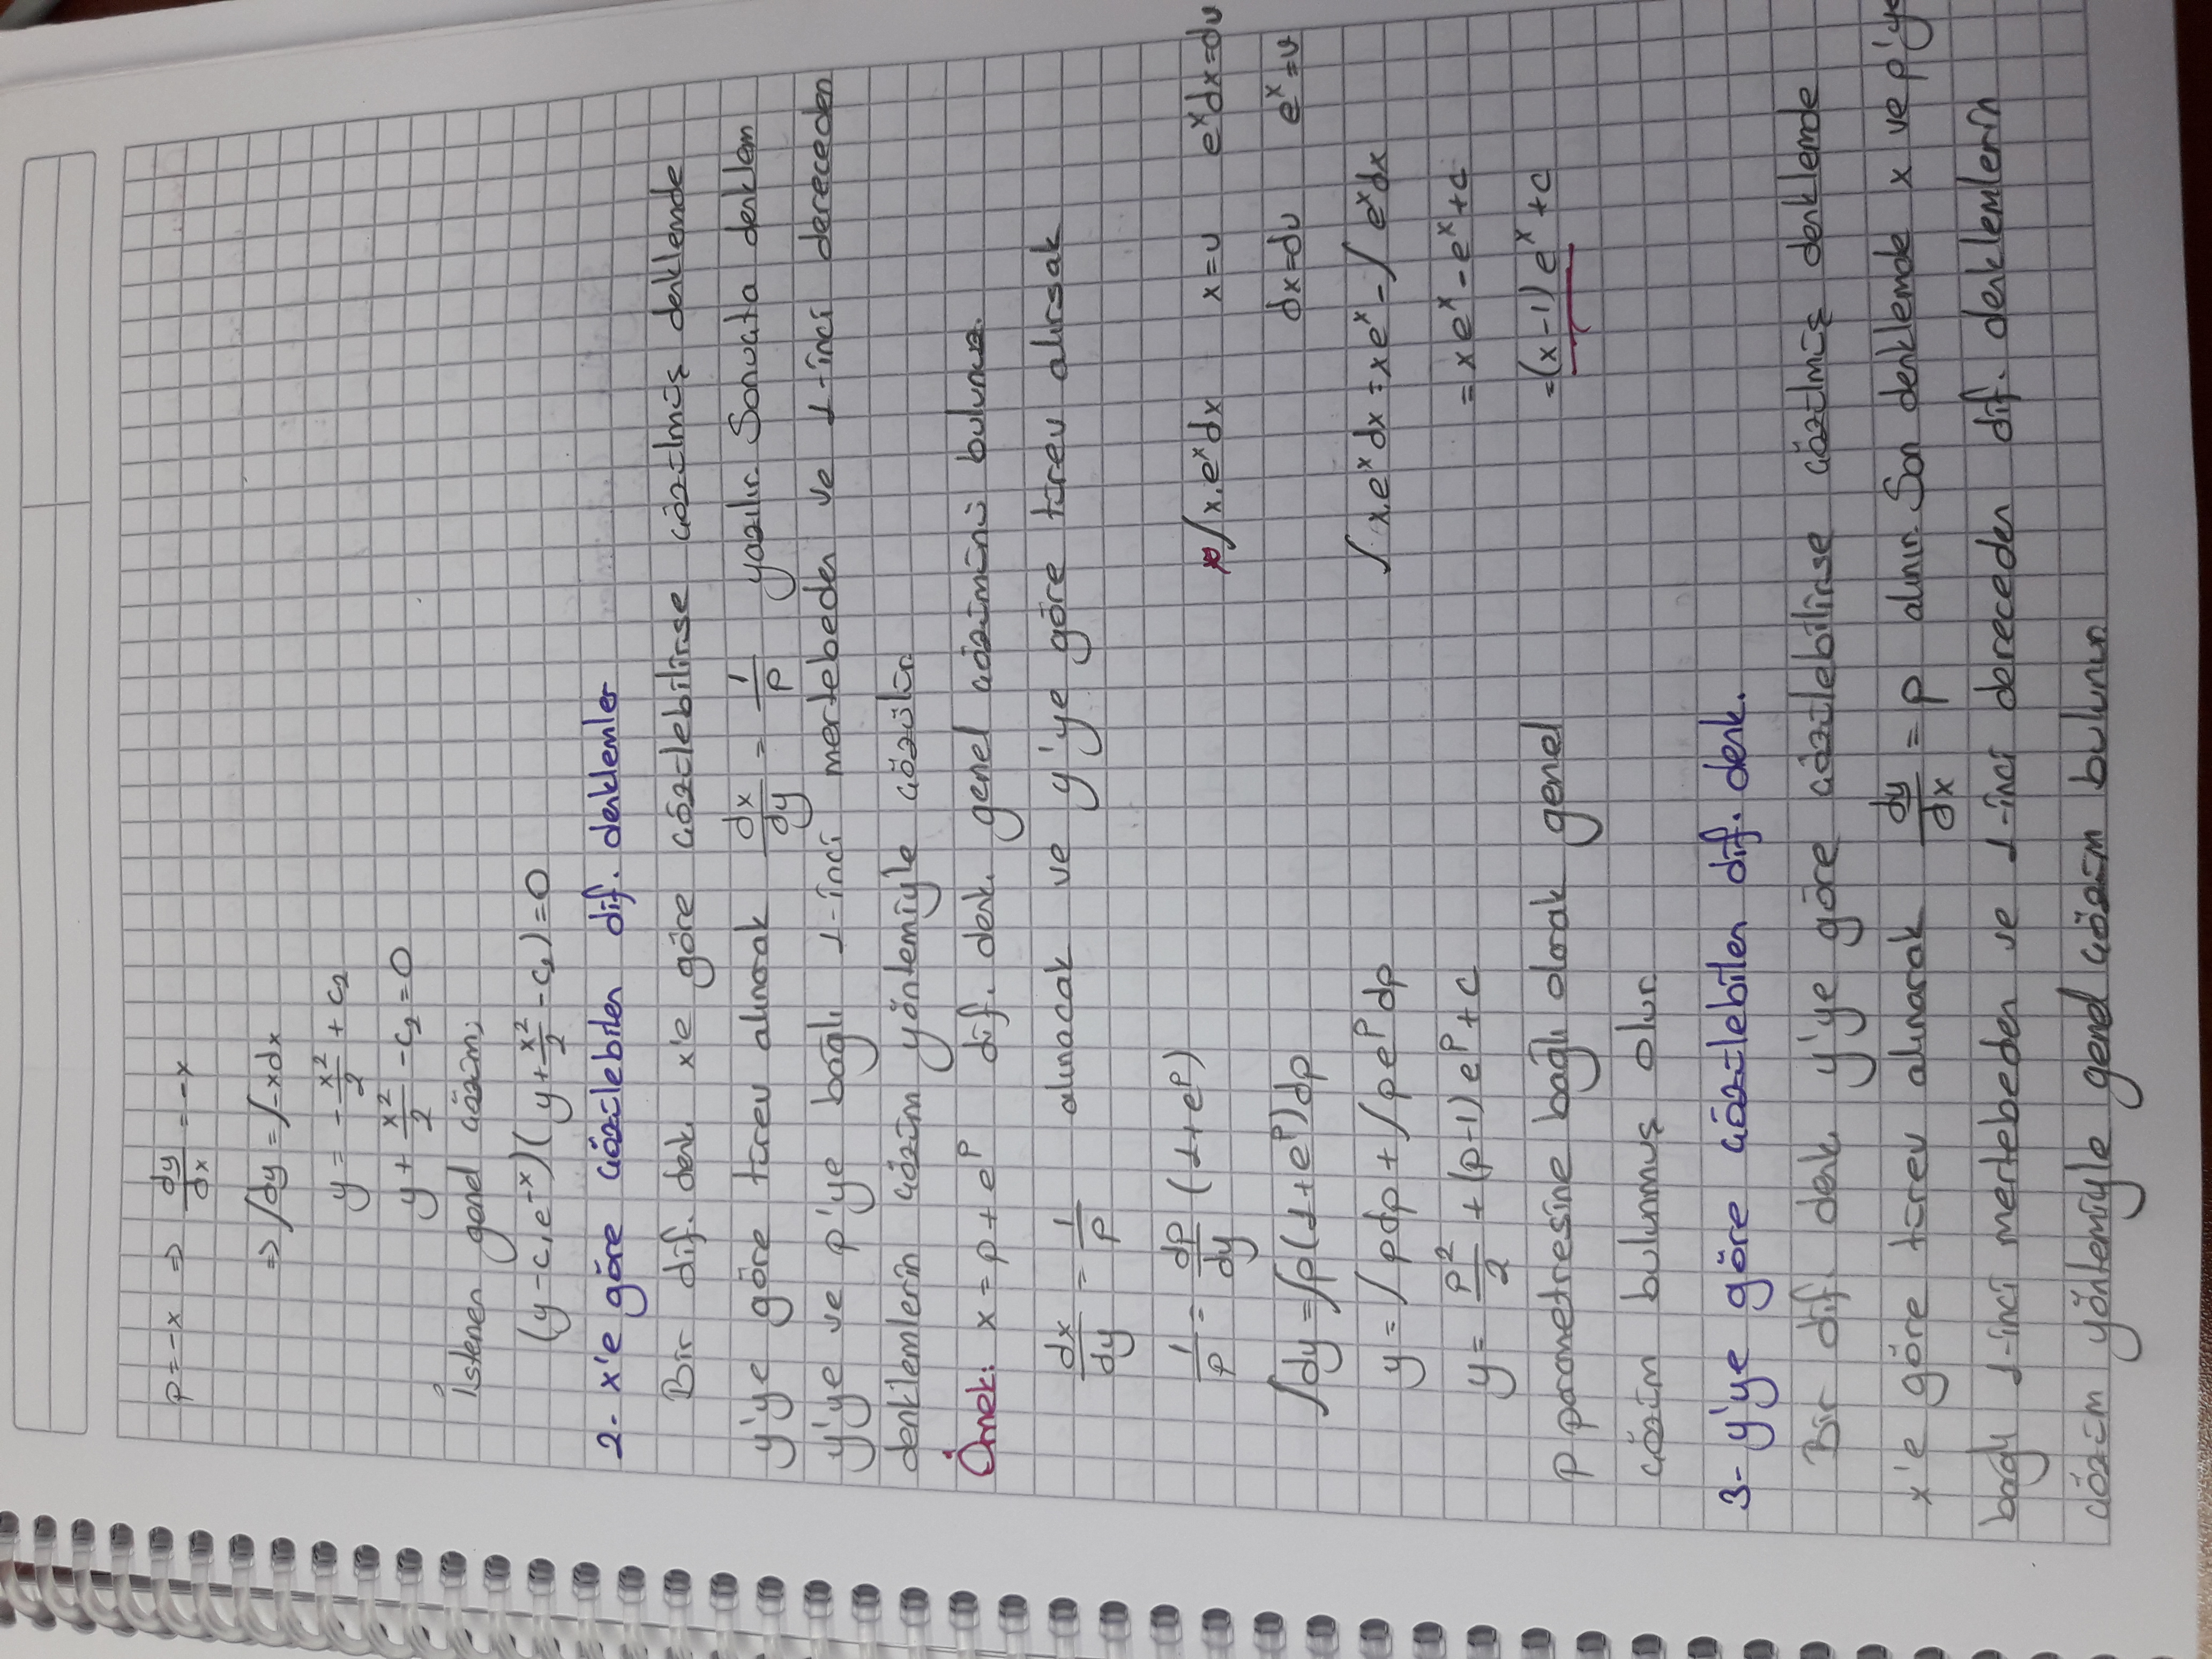 p = -x ⇒ dy/dx = -x
⇒ ∫dy = ∫-xdx
y = -x²/2 + c₂
y + x²/2 - c₂ = 0
İstenen genel çözüm;
(y - c₁e⁻ˣ)(y + x²/2 - c₂) = 0
2- x'e göre çözülebilen dif. denklemler
Bir dif. denk. x'e göre çözülebilirse çözülmüş denklemde
y'ye göre türev alınarak dx/dy = 1/p yazılır. Sonuçta denklem
y'ye ve p'ye bağlı 1-inci mertebeden ve 1-inci dereceden
denklemlerin çözüm yöntemiyle çözülür.
Örnek: x = p + eᵖ dif. denk. genel çözümünü bulunuz.
dx/dy = 1/p alınacak ve y'ye göre türev alırsak
1/p = dp/dy (1+eᵖ)
∫dy = ∫p(1+eᵖ)dp
y = ∫pdp + ∫peᵖdp
y = p²/2 + (p-1)eᵖ + c
p parametresine bağlı olarak genel
çözüm bulunmuş olur.
* ∫x.eˣdx x=u eˣdx=dv
dx=du eˣ=v
∫x.eˣdx = xeˣ - ∫eˣdx
= xeˣ - eˣ + c
= (x-1)eˣ + c
3- y'ye göre çözülebilen dif. denk.
Bir dif. denk. y'ye göre çözülebilirse çözülmüş denklemde
x'e göre türev alınarak dy/dx = p alınır. Son denklemde x ve p'ye
bağlı 1-inci mertebeden ve 1-inci dereceden dif. denklemlerin
çözüm yöntemiyle genel çözüm bulunur.